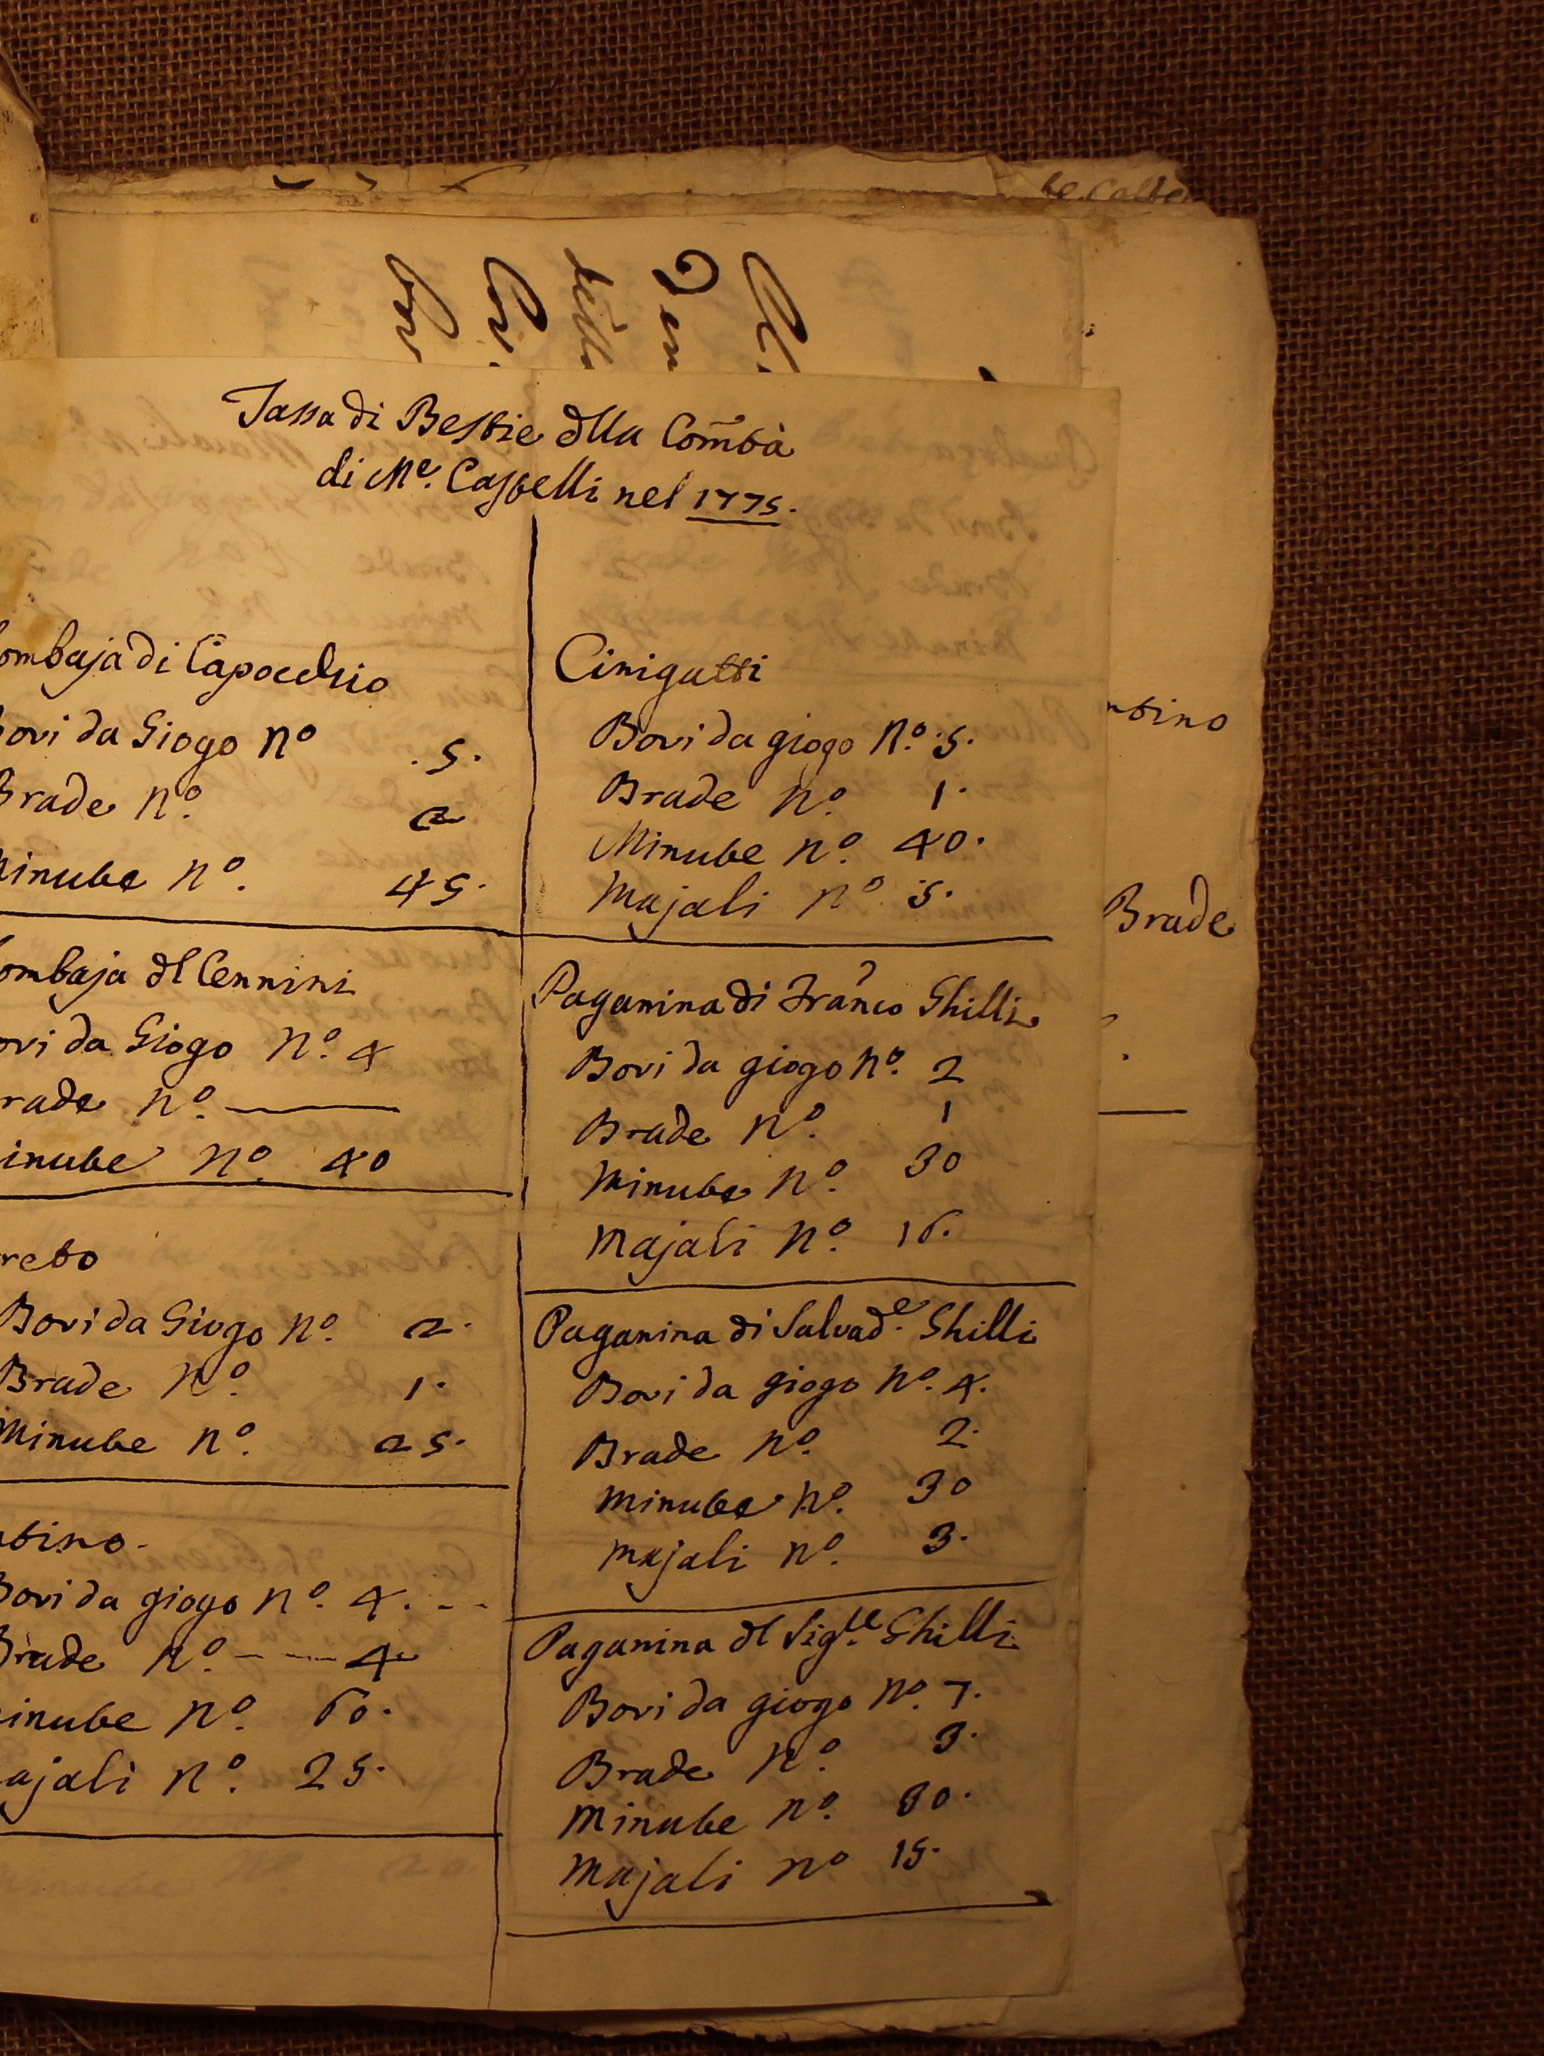 Tassa di Bestie dlla Com̃tà
di Me. Castelli nel 1775.
ombaja di Capocchio
ovi da Giogo no .5.
Brade no. 2
inube no. 45.
ombaja dl Cennini
ovi da Giogo no. 4
rade no.
inube no. 40
reto
Bovi da Giogo no. 2.
Brade no. 1.
Minube no. 25.
ntino.
Bovi da giogo no. 4.
Brade no. 4
inube no. 60.
ajali no. 25.
Cinigatti
Bovi da giogo no. 5.
Brade no. 1.
Minube no. 40.
Majali no 5.
Paganina di Franco Ghilli
Bovi da giogo no. 2
Brade no. 1
Minube no. 30
Majali no. 16.
Paganina di Salvade. Ghilli
Bovi da giogo no. 4.
Brade no. 2.
Minube no. 30
Majali no. 3.
Paganina dl Sigle. Ghilli
Bovi da giogo no. 7.
Brade no. 3.
Minube no. 30.
Majali no 15.
ntino
Brade